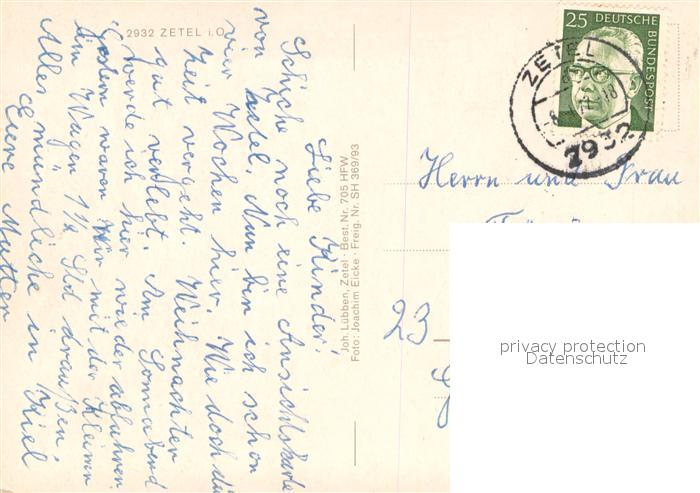 2932 ZETEL i.O
Liebe Kinder!
Schicke noch eine Ansichtskarte
von Zetel. Nun bin ich schon
vier Wochen hier. Wie doch die
Zeit vergeht. Weihnachten
gut verlebt. Am Sonnabend
werde ich hier wieder abfahren.
Gestern waren wir mit der Kleinen
im Wagen 1½ Std draußen.
Alles mündliche in Kiel
Eure Mutter
Joh. Lübben, Zetel · Best. Nr. 705 HFW
Foto: Joachim Eicke · Freig. Nr. SH 369/93
25 DEUTSCHE
BUNDESPOST
ZETEL
2932
Herrn und Frau
23
privacy protection
Datenschutz